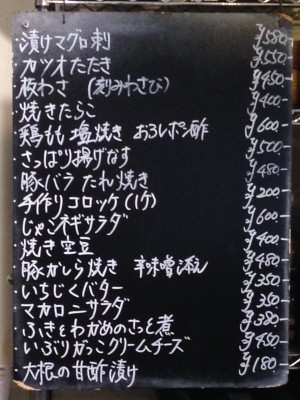 ・漬けマグロ刺 ¥580-
・カツオたたき ¥550-
・板わさ (刻みわさび) ¥450-
・焼きたらこ ¥400-
・鶏もも塩焼き おろしポン酢 ¥600-
・さっぱり揚げなす ¥500-
・豚バラ たれ焼き ¥480-
・手作りコロッケ(1ケ) ¥200-
・じゃこネギサラダ ¥600-
・焼き空豆 ¥400-
・豚がしら焼き 辛味噌添え ¥480-
・いちじくバター ¥350-
・マカロニサラダ ¥350-
・ふきとわかめのさっと煮 ¥380-
・いぶりがっこクリームチーズ ¥450-
・大根の甘酢漬け ¥180-